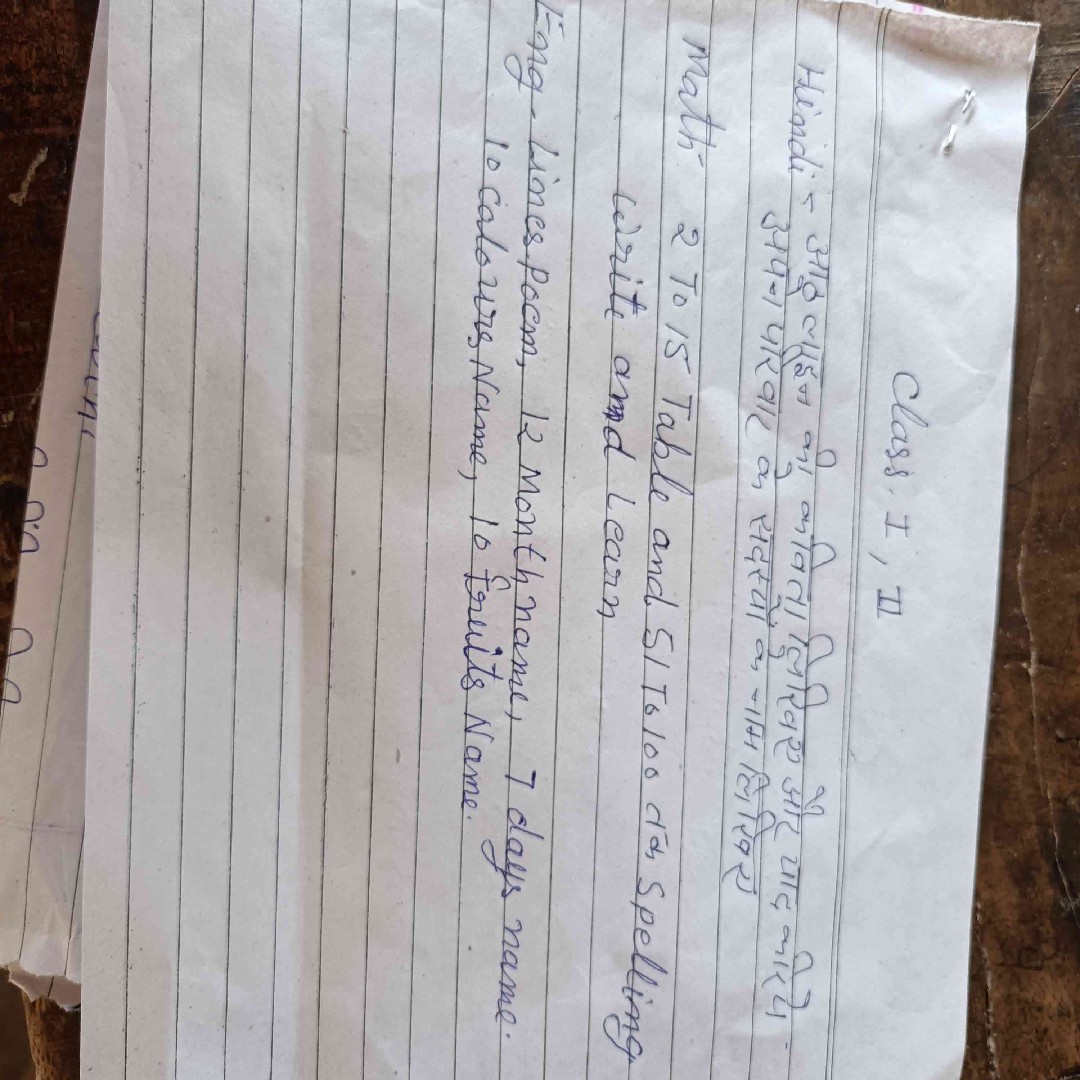 Class. I, II
Hindi - आठ लाइन की कविता लिखिए और याद करिये
अपने परिवार के सदस्यों के नाम लिखिए
Math - 2 To 15 Table and 51 To 100 तक Spelling
write and Learn
Eng - Lines poem, 12 Month name, 7 days name.
10 colours Name, 10 Fruits Name.